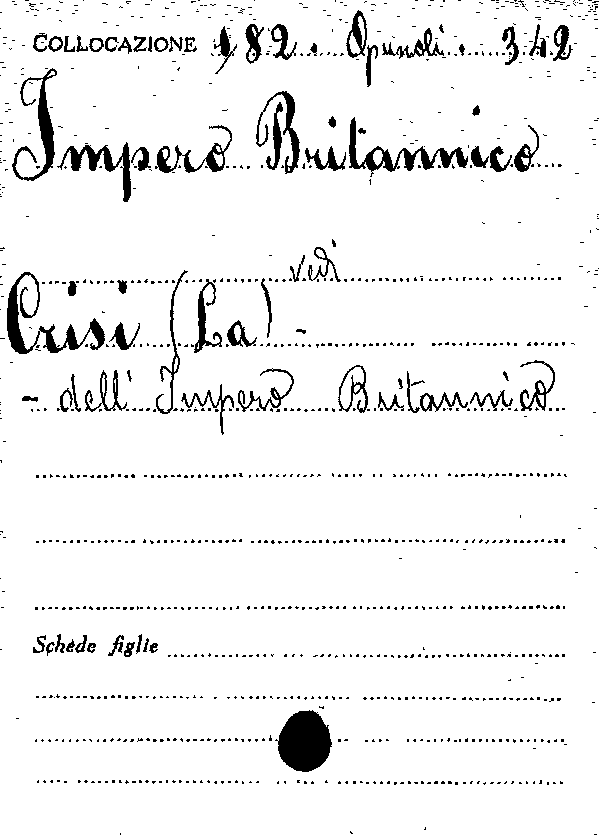 COLLOCAZIONE 182. Opuscoli. 342
Impero Britannico
vedi
Crisi (La) -
- dell' Impero Britannico
Schede figlie